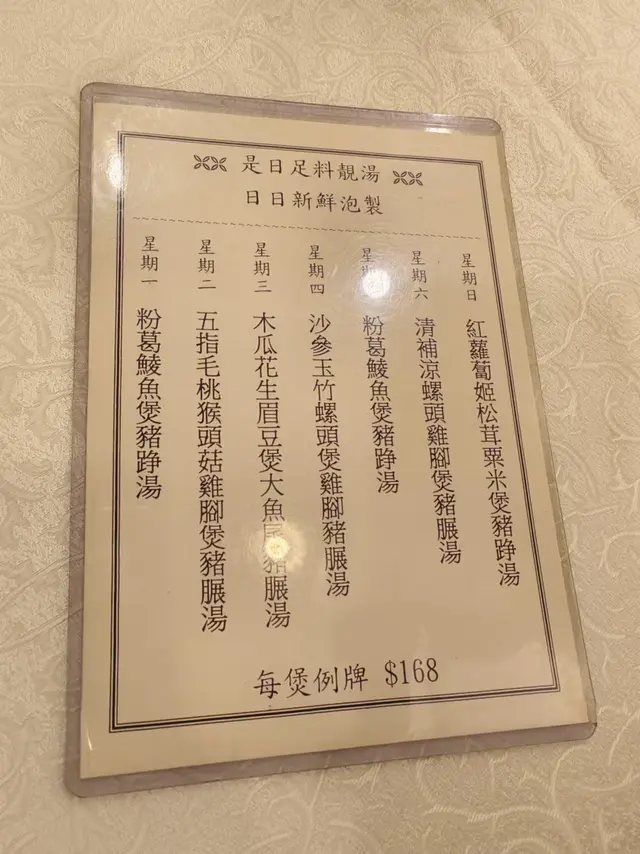 是日足料靚湯
日日新鮮泡製
星期一
粉葛鯪魚煲豬踭湯
星期二
五指毛桃猴頭菇雞腳煲豬𦟌湯
星期三
木瓜花生眉豆煲大魚尾豬𦟌湯
星期四
沙參玉竹螺頭煲雞腳豬𦟌湯
星期
粉葛鯪魚煲豬踭湯
星期六
清補涼螺頭雞腳煲豬𦟌湯
星期日
紅蘿蔔姬松茸粟米煲豬踭湯
每煲例牌 $168